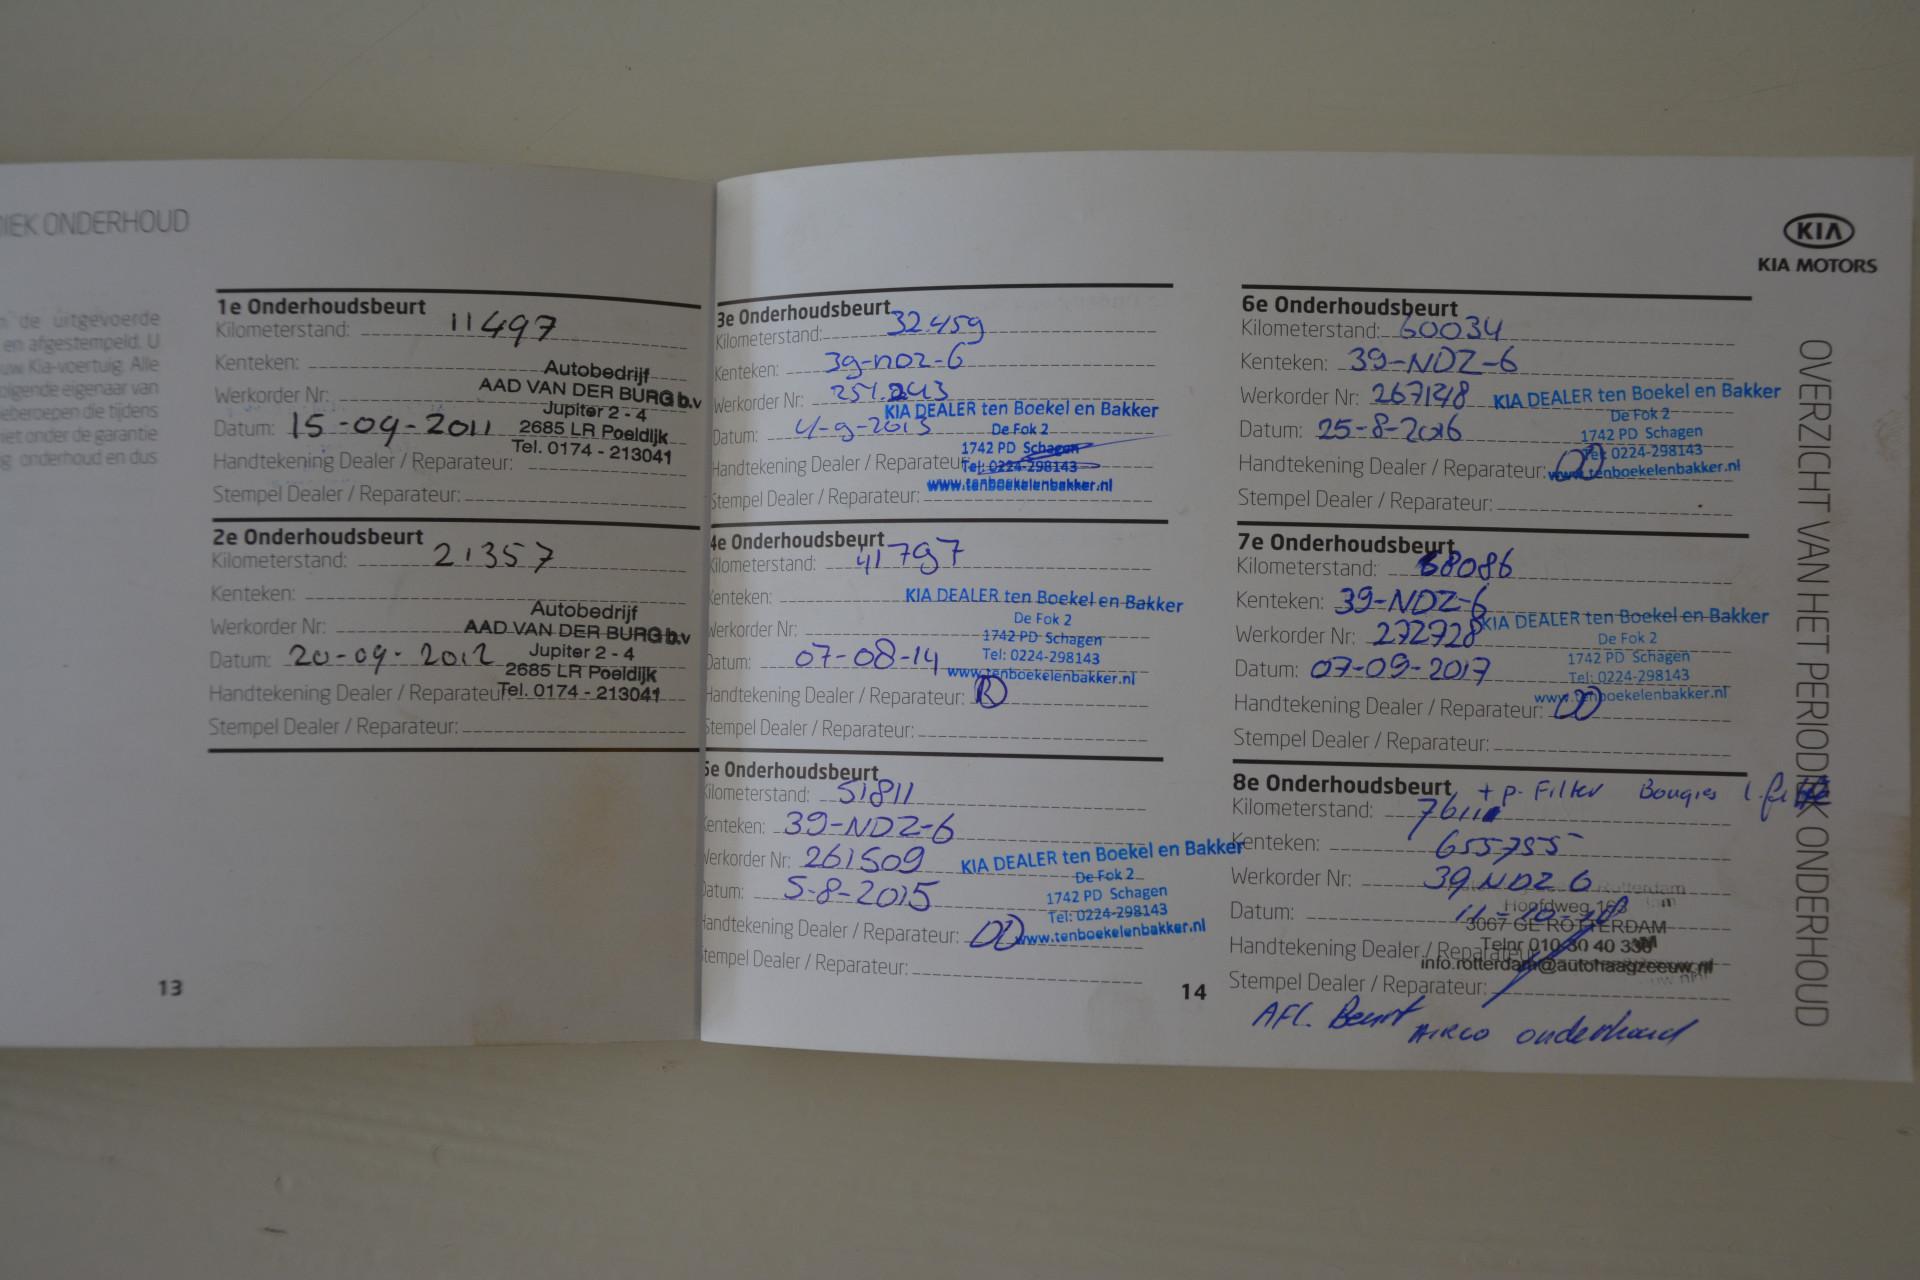 ONDERHOUD
de uitgevoerde
en afgestempeld. U
Kia-voertuig. Alle
eigenaar van
die tijdens
onder de garantie
onderhoud en dus
1e Onderhoudsbeurt
Kilometerstand: 11497
Kenteken:
Werkorder Nr:
Datum: 15-09-2011
Handtekening Dealer / Reparateur:
Stempel Dealer / Reparateur:
Autobedrijf
AAD VAN DER BURG b.v
Jupiter 2 - 4
2685 LR Poeldijk
Tel. 0174 - 213041
2e Onderhoudsbeurt
Kilometerstand: 21357
Kenteken:
Werkorder Nr:
Datum: 20-09-2012
Handtekening Dealer / Reparateur:
Stempel Dealer / Reparateur:
Autobedrijf
AAD VAN DER BURG b.v
Jupiter 2 - 4
2685 LR Poeldijk
Tel. 0174 - 213041
13
3e Onderhoudsbeurt
Kilometerstand: 32.459
Kenteken: 39-NDZ-6
Werkorder Nr:
Datum: 4-9-2013
Handtekening Dealer / Reparateur:
Stempel Dealer / Reparateur:
KIA DEALER ten Boekel en Bakker
De Fok 2
1742 PD Schagen
Tel: 0224-298143
www.tenboekelenbakker.nl
4e Onderhoudsbeurt
Kilometerstand: 41797
Kenteken:
Werkorder Nr:
Datum: 07-08-14
Handtekening Dealer / Reparateur:
Stempel Dealer / Reparateur:
KIA DEALER ten Boekel en Bakker
De Fok 2
1742 PD Schagen
Tel: 0224-298143
www.tenboekelenbakker.nl
5e Onderhoudsbeurt
Kilometerstand: 51811
Kenteken: 39-NDZ-6
Werkorder Nr: 261509
Datum: 5-8-2015
Handtekening Dealer / Reparateur:
Stempel Dealer / Reparateur:
KIA DEALER ten Boekel en Bakker
De Fok 2
1742 PD Schagen
Tel: 0224-298143
www.tenboekelenbakker.nl
14
KIA
KIA MOTORS
6e Onderhoudsbeurt
Kilometerstand: 60034
Kenteken: 39-NDZ-6
Werkorder Nr: 267148
Datum: 25-8-2016
Handtekening Dealer / Reparateur:
Stempel Dealer / Reparateur:
KIA DEALER ten Boekel en Bakker
De Fok 2
1742 PD Schagen
Tel: 0224-298143
www.tenboekelenbakker.nl
7e Onderhoudsbeurt
Kilometerstand: 68086
Kenteken: 39-NDZ-6
Werkorder Nr: 272728
Datum: 07-09-2017
Handtekening Dealer / Reparateur:
Stempel Dealer / Reparateur:
KIA DEALER ten Boekel en Bakker
De Fok 2
1742 PD Schagen
Tel: 0224-298143
www.tenboekelenbakker.nl
8e Onderhoudsbeurt + p. Filter Bougies
Kilometerstand:
Kenteken: 655755
Werkorder Nr: 39 NDZ 6
Datum: 11-10-18
Handtekening Dealer / Reparateur:
Stempel Dealer / Reparateur:
Rotterdam
Hoofdweg
3067 GE ROTTERDAM
Telnr 010 30 40
info.rotterdam@autohaagzeeuw.nl
AFL. Beurt Airco onderhoud
OVERZICHT VAN HET PERIODIEK ONDERHOUD